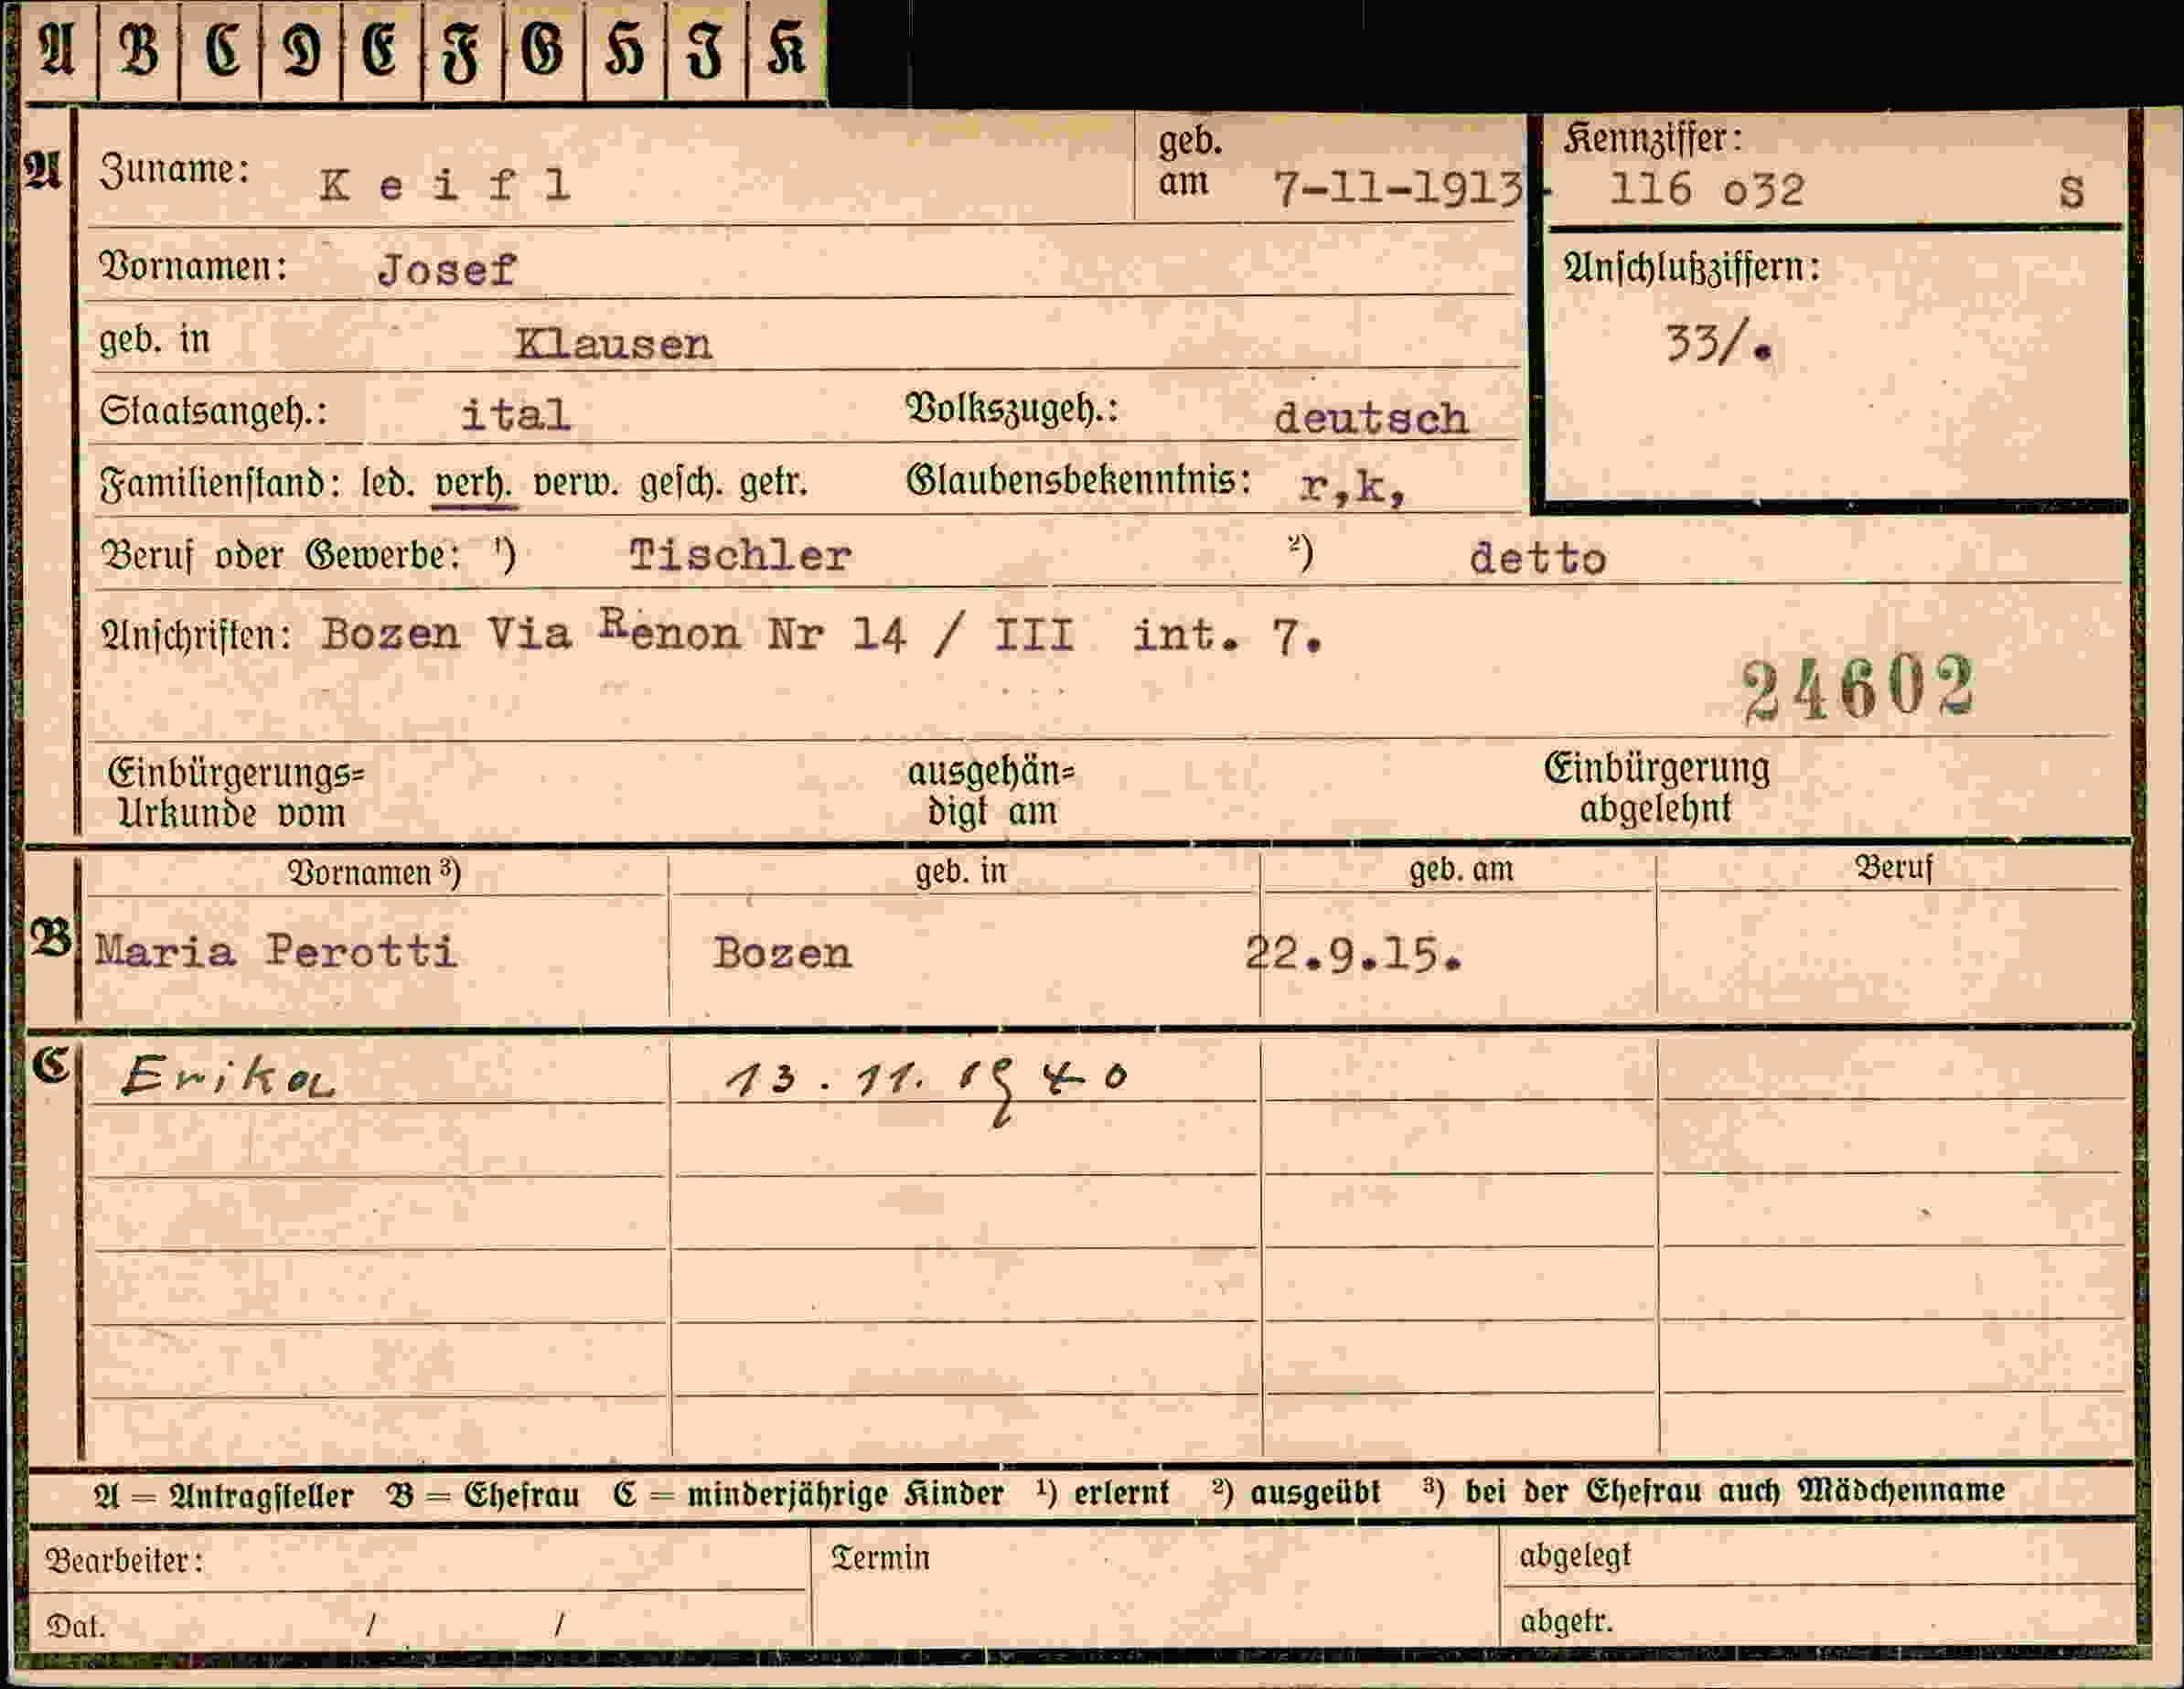 A B C D E F G H I K
A Zuname: K e i f l geb. am 7-11-1913. Kennziffer: 116 o32 S
Vornamen: Josef Anschlußziffern:
geb. in Klausen 33/.
Staatsangeh.: ital Volkszugeh.: deutsch
Familienstand: led. verh. verw. gesch. getr. Glaubensbekenntnis: r,k,
Beruf oder Gewerbe: 1) Tischler 2) detto
Anschriften: Bozen Via Renon Nr 14 / III int. 7.
24602
Einbürgerungs= ausgehän= Einbürgerung
Urkunde vom digt am abgelehnt
Vornamen 3) geb. in geb. am Beruf
B Maria Perotti Bozen 22.9.15.
C Erika 13.11.1940
A = Antragsteller B = Ehefrau C = minderjährige Kinder 1) erlernt 2) ausgeübt 3) bei der Ehefrau auch Mädchenname
Bearbeiter: Termin abgelegt
Dat. / / abgetr.